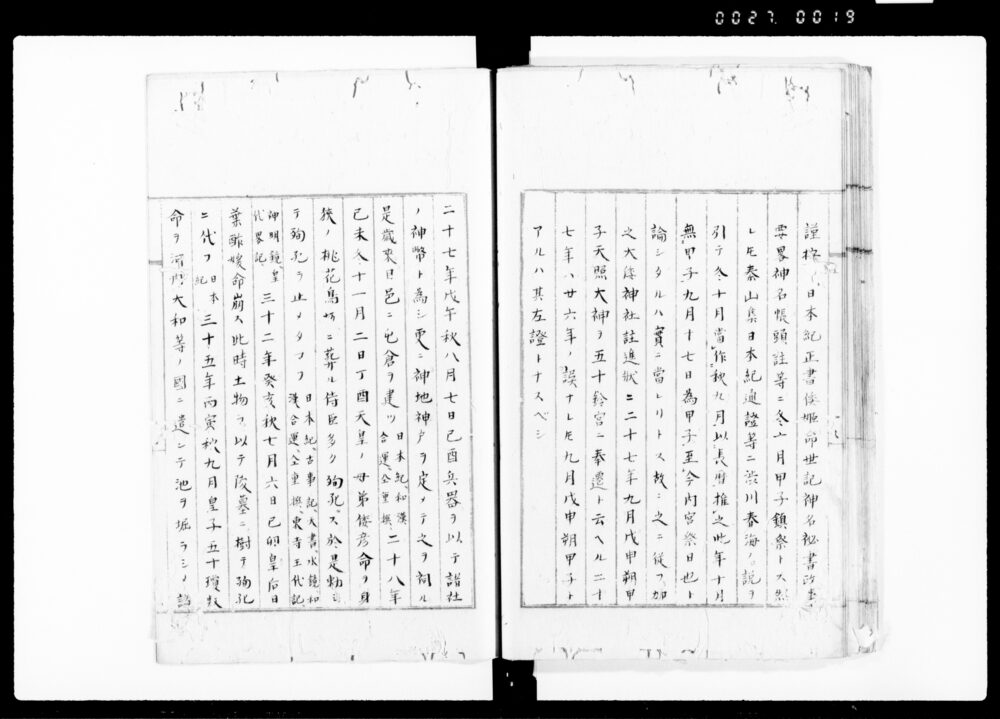 0027.0019
謹按ニ日本紀正書倭姫命世記神名祕書改
要畧神名帳頭註等ニ冬十月甲子鎮祭トス然
レ𪜈泰山集日本紀通證等ニ渋川春海ノ説ヲ
引テ冬十月當作秋九月以長暦推之此年十月
無甲子九月十七日為甲子至今内宮祭日也ト
論シタルハ實ニ當レリトス故ニ之ニ従フ加
之大倭神社註進狀ニ二十七年九月戊申朔甲
子天照大神ヲ五十鈴宮ニ奉遷ト云ヘル二十
七年ハ廿六年ノ誤ナレ𪜈九月戊申朔甲子ト
アルハ其左證トナスベシ
二十七年戊午秋八月七日己酉兵器ヲ以テ諸社
ノ神幣ト為シ更ニ神地神戸ヲ定メテ之ヲ祠ル
是歳來目邑ニ屯倉ヲ建ツ 日本紀、和漢合運、仝重撰、二十八年
己未冬十一月二日丁酉天皇ノ母弟倭彦命ヲ身
狹ノ桃花鳥坂ニ葬ル侍臣多ク殉死ス於是勅シ
テ殉死ヲ止メタマフ 日本紀、古事記、大書、水鏡、和漢合運、仝重撰、東寺王代記、
神明鏡、皇代畧記、三十二年癸亥秋七月六日己卯皇后日
葉酢媛命崩ス此時土物ヲ以テ陵墓ニ樹テ殉死
ニ代フ 日本紀 三十五年丙寅秋九月皇子五十瓊敷
命ヲ河内大和等ノ國ニ遣シテ池ヲ堀ラシメ諸